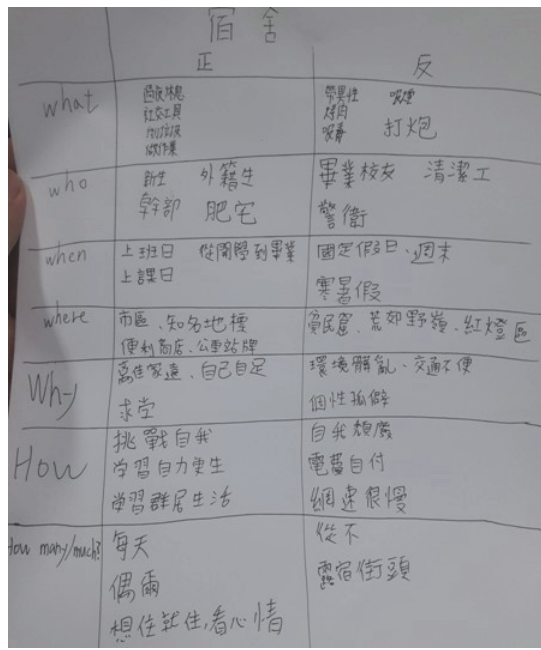 宿舍
正 反
what
過夜休息
社交工具
倒垃圾
做作業
帶異性 吸煙
烤肉
吸毒 打炮
who
新生 外籍生
幹部 肥宅
畢業校友 清潔工
警衛
when
上班日 從開學到畢業
上課日
國定假日、週末
寒暑假
where
市區、知名地標
便利商店、公車站牌
貧民窟、荒郊野嶺、紅燈區
Why
離家遠、自己自足
求学
環境髒亂、交通不便
個性孤僻
How
挑戰自我
学習自力更生
学習群居生活
自我頹廢
電費自付
網速很慢
How many/much?
每天
偶爾
想住就住,看心情
從不
露宿街頭